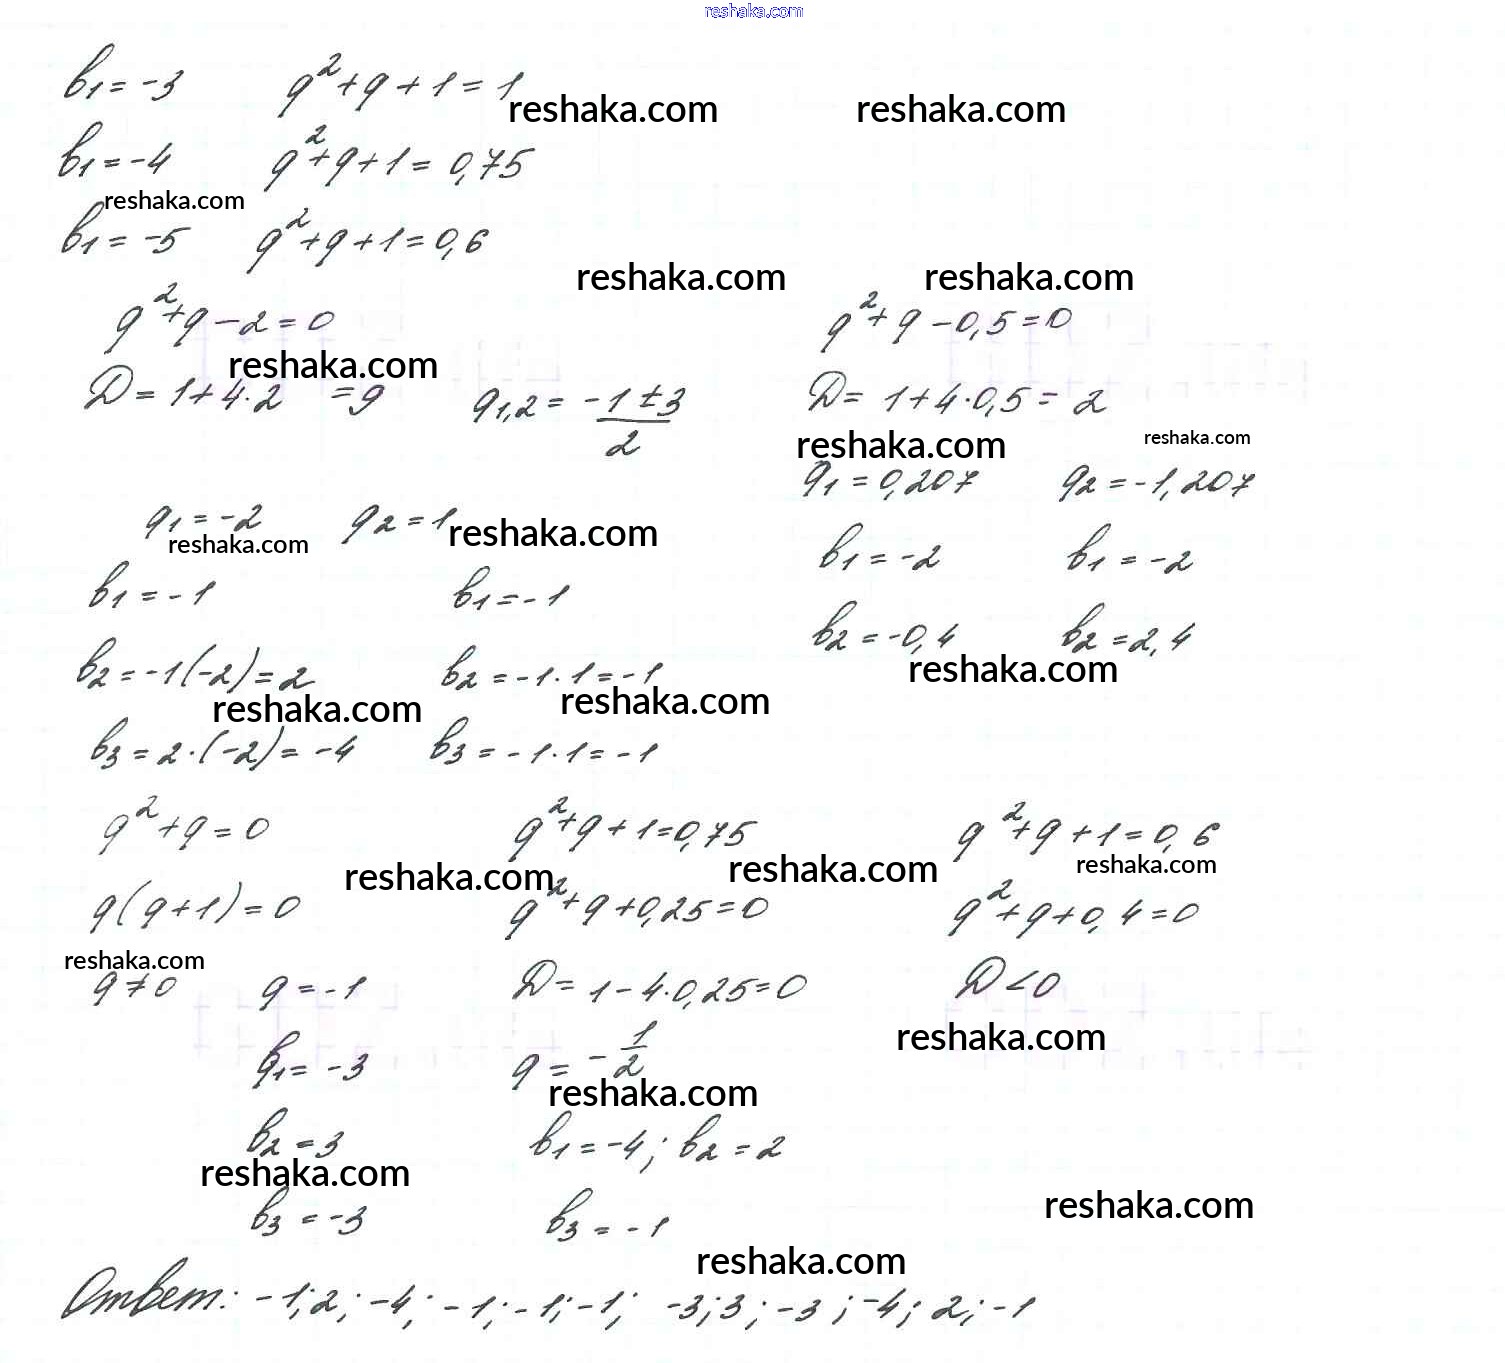 reshaka.com
b₁ = -3 q² + q + 1 = 1
reshaka.com reshaka.com
b₁ = -4 q² + q + 1 = 0,75
reshaka.com
b₁ = -5 q² + q + 1 = 0,6
reshaka.com reshaka.com
q² + q - 2 = 0 q² + q - 0,5 = 0
reshaka.com
D = 1 + 4·2 = 9 q₁,₂ = (-1 ± 3)/2 D = 1 + 4·0,5 = 2
reshaka.com reshaka.com
q₁ = 0,207 q₂ = -1,207
q₁ = -2 q₂ = 1
reshaka.com reshaka.com
b₁ = -2 b₁ = -2
b₁ = -1 b₁ = -1
b₂ = -0,4 b₂ = 2,4
reshaka.com
b₂ = -1(-2) = 2 b₂ = -1·1 = -1
reshaka.com reshaka.com
b₃ = 2·(-2) = -4 b₃ = -1·1 = -1
q² + q = 0 q² + q + 1 = 0,75 q² + q + 1 = 0,6
reshaka.com reshaka.com reshaka.com
q(q + 1) = 0 q² + q + 0,25 = 0 q² + q + 0,4 = 0
reshaka.com
q ≠ 0 q = -1 D = 1 - 4·0,25 = 0 D < 0
reshaka.com
b₁ = -3 q = -1/2
reshaka.com
b₂ = 3 b₁ = -4; b₂ = 2
reshaka.com reshaka.com
b₃ = -3 b₃ = -1
reshaka.com
Ответ: -1; 2; -4; -1; -1; -1; -3; 3; -3; -4; 2; -1